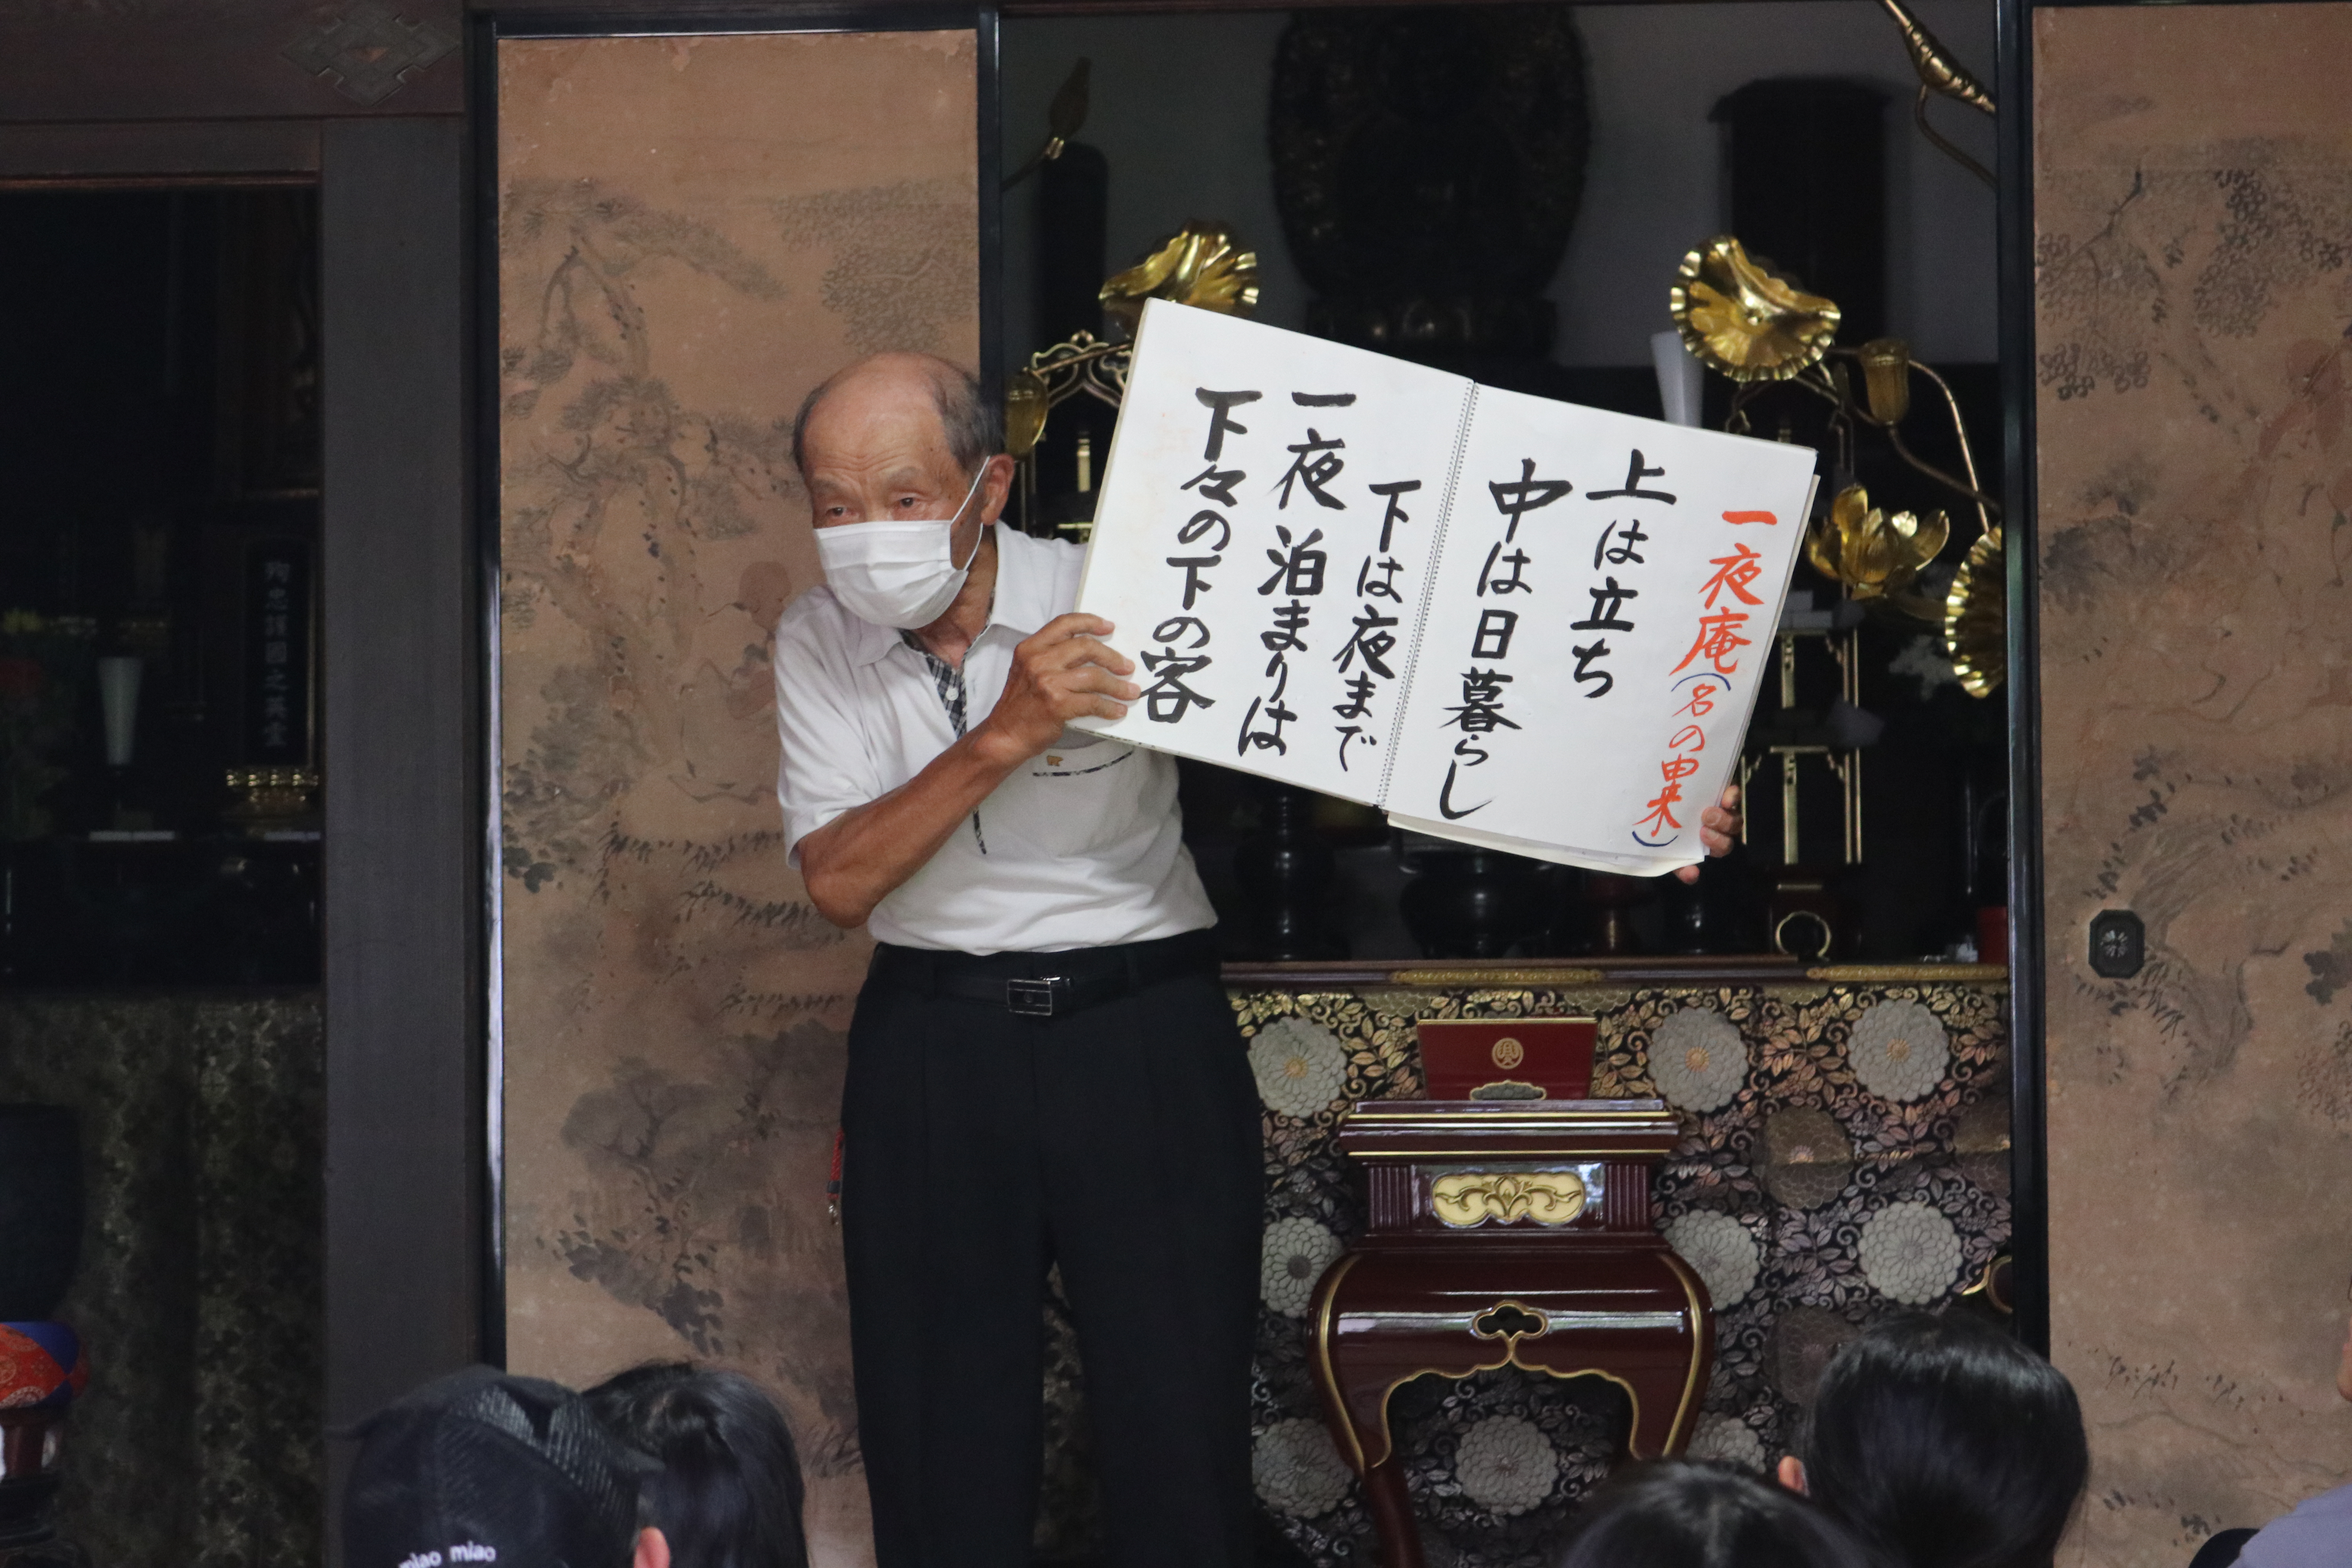 一夜庵(名の由来)
上は立ち
中は日暮らし
下は夜まで
一夜泊まりは
下々の下の客
殉忠護國之英霊
miao miao